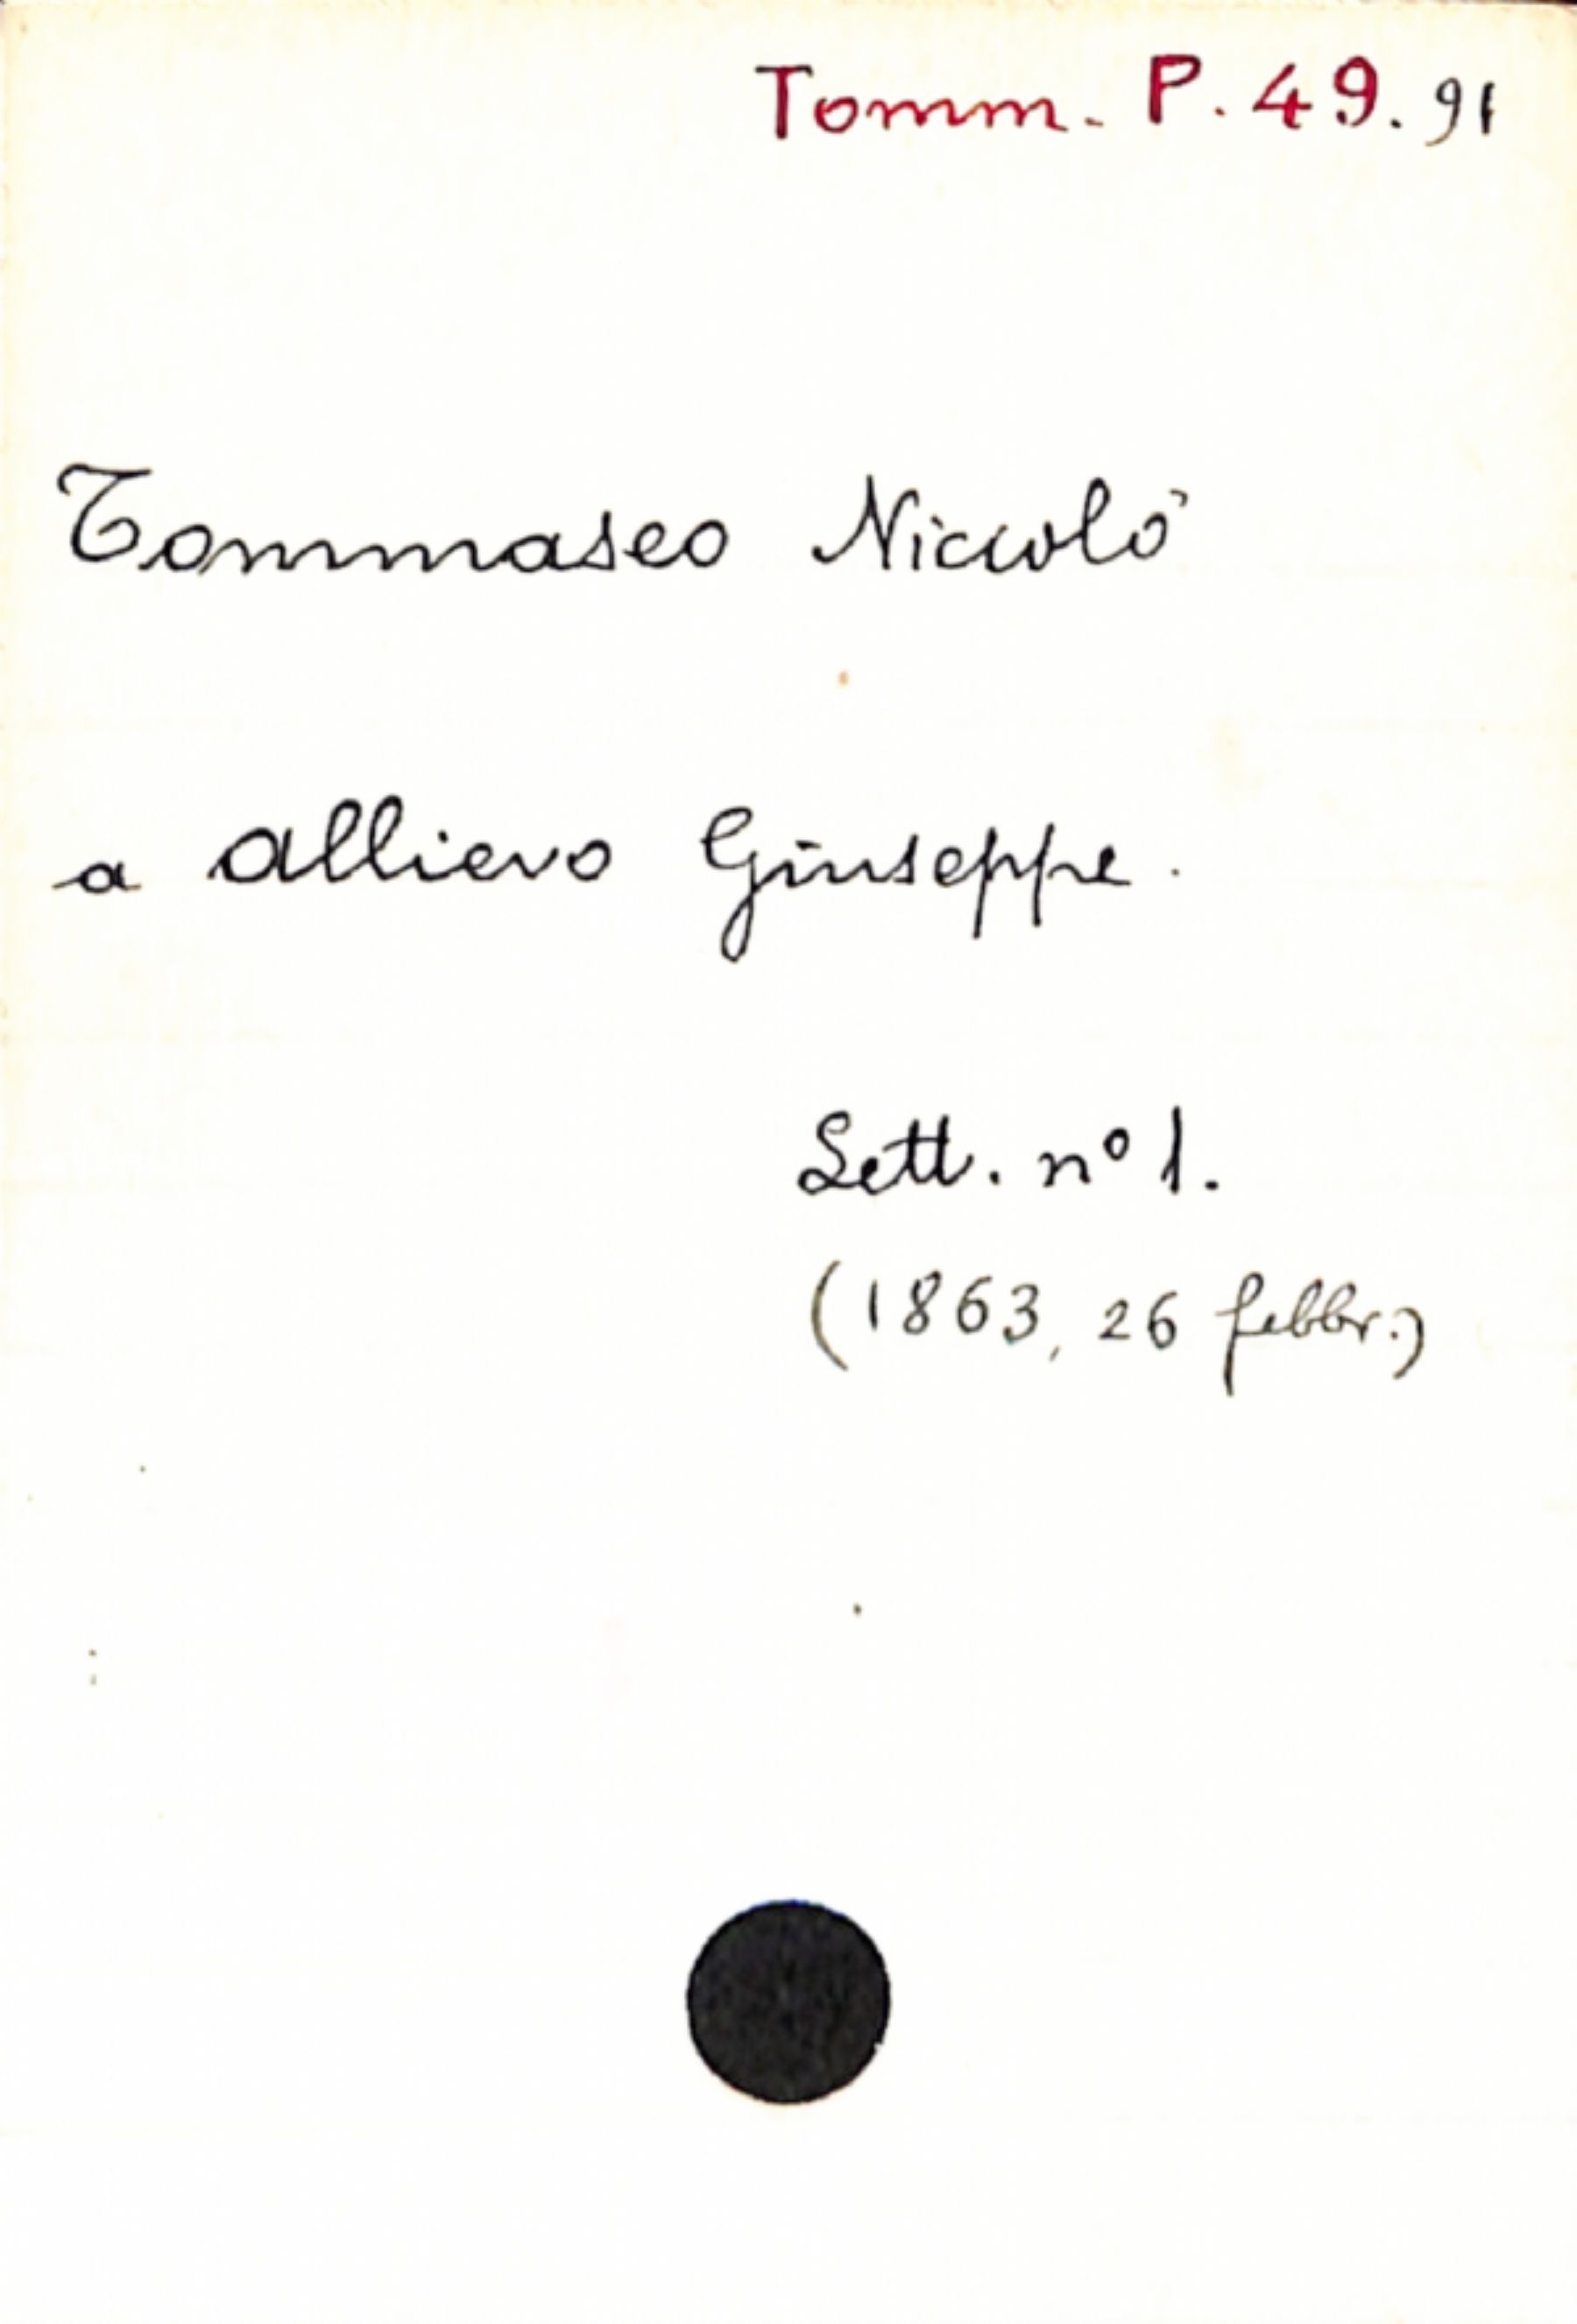 Tomm. P. 49. 91
Tommaseo Niccolò
a Allievo Giuseppe.
Lett. n° 1.
(1863, 26 febbr.)